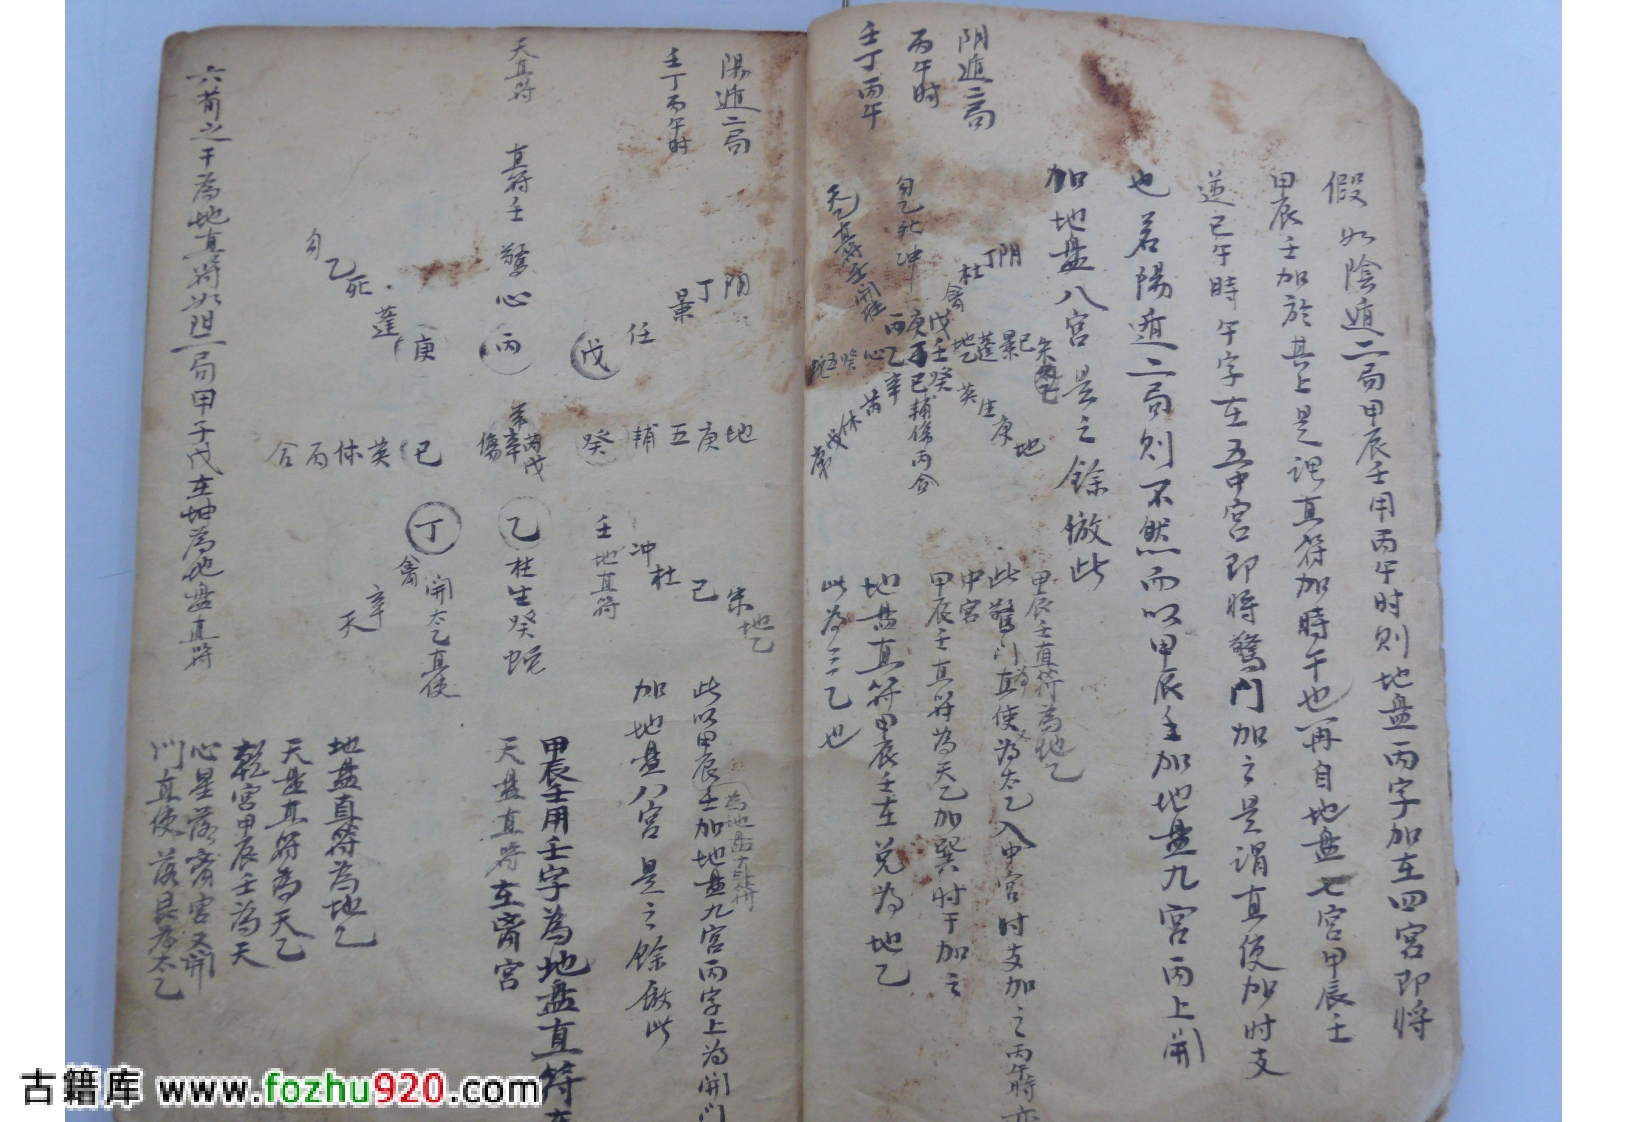 假如陰遁二局甲辰壬用丙午时则地盘丙字加在四宮即将
甲辰壬加於其上是谓直符加時干也再自地盘七宮甲辰壬
逆已午時午字在五中宮即将驚門加之是謂直使加时支
也若陽遁二局则不然而以甲辰壬加地盘九宮丙上開
加地盘八宮是之餘倣此
阴遁二局
丙午时
壬丁丙午
丁阴
杜
禽
戊壬癸
庚
丙乙辛
己輔傷丙合
朱
己景蓬
英生庚地
芮休戊
天乙直符壬開
勾乙死冲
甲辰壬直符为地乙
此驚门直使为太乙入中宮时支加之丙午時
中宮
甲辰壬直符为天乙加巽时干加之
地盘直符甲辰壬在兑为地乙
此为三乙也
陽遁二局
壬丁丙午时
天直符
直符壬驚心丙
阴丁景任戊
勾乙死蓬庚
地庚五輔癸
芮戊
辛
傷
己英休丙合
朱地乙
己杜冲
壬地直符
乙柱生癸蛇
丁禽
開太乙直使
辛天
此以甲辰壬加地盘九宮丙字上为開门
为地盘直符
加地盘八宮是之餘倣此
甲辰壬用壬字為地盘直符
天盘直符在离宮
地盘直符為地乙
天盘直符為天乙
乾宮甲辰壬為天
心星落离宮又開
门直使落艮为太乙
六甫之干為地直符如阳一局甲子戊在坤為地盘直符
古籍库 www.fozhu920.com